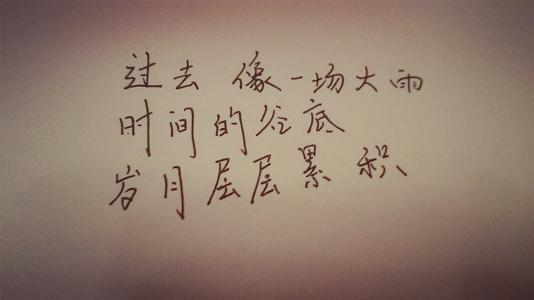 过去 像一场大雨
时间的谷底
岁月层层累积